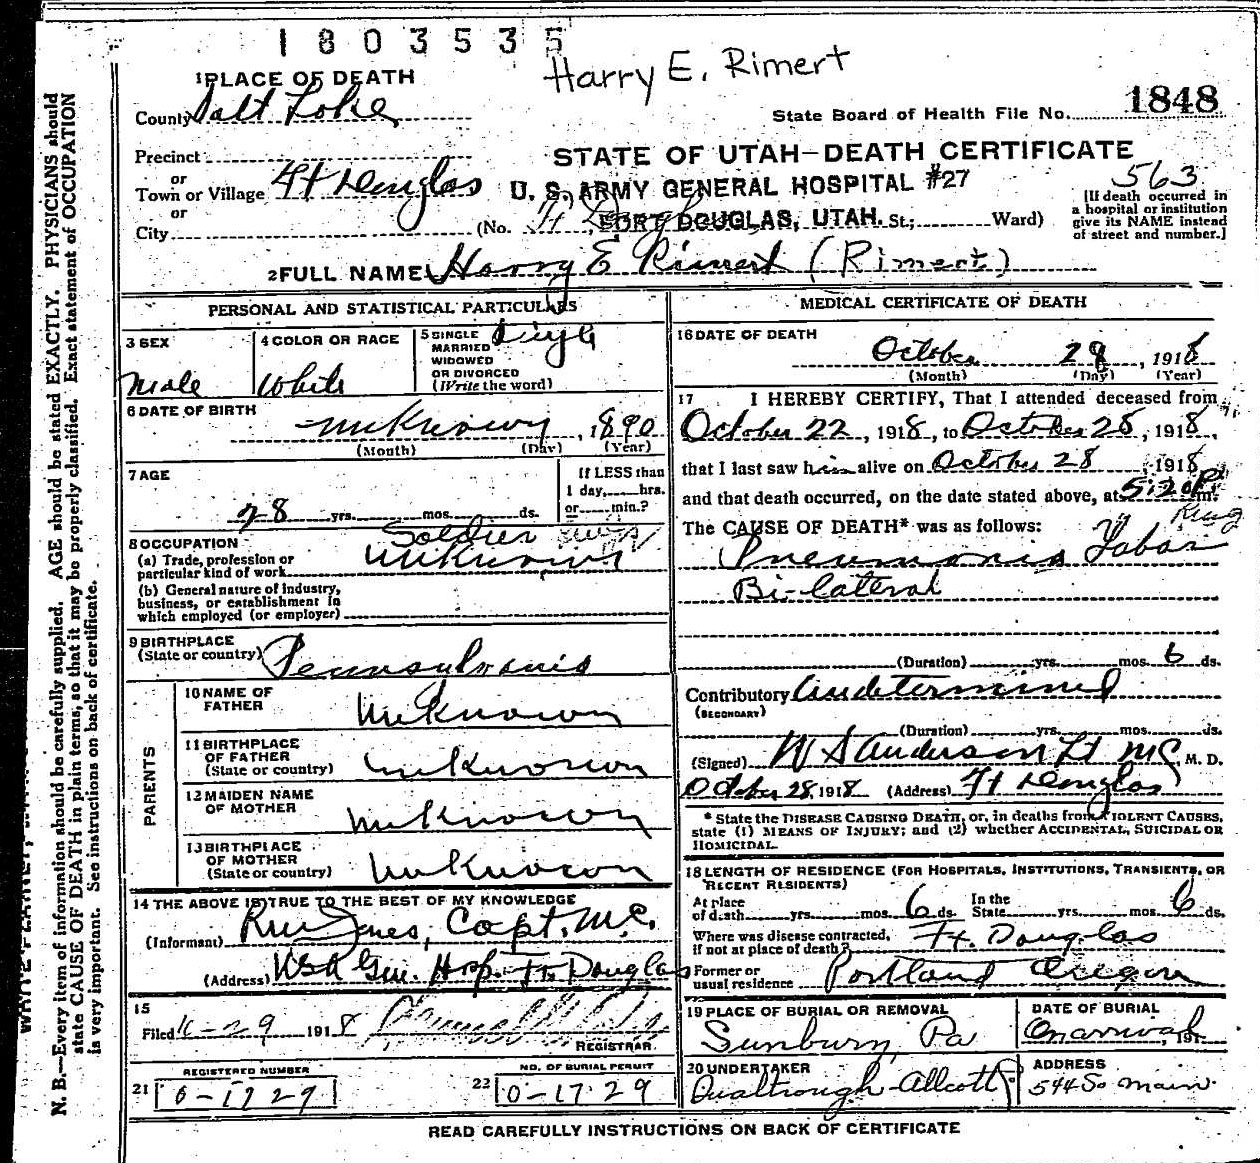 1803535
Harry E. Rimert
1 PLACE OF DEATH
County Salt Lake
State Board of Health File No. 1848
Precinct
or
Town or Village Ft Douglas
or
City
STATE OF UTAH—DEATH CERTIFICATE
U. S. ARMY GENERAL HOSPITAL #27
(No. Ft Douglas FORT DOUGLAS, UTAH. St; Ward)
563
[If death occurred in
a hospital or institution
give its NAME instead
of street and number.]
2 FULL NAME Harry E Rimert (Rimert)
PERSONAL AND STATISTICAL PARTICULARS
3 SEX
Male
4 COLOR OR RACE
White
5 SINGLE
MARRIED
WIDOWED
OR DIVORCED
(Write the word)
Single
6 DATE OF BIRTH
unknown, 1890
(Month) (Day) (Year)
7 AGE
28 yrs. mos. ds.
If LESS than
1 day, hrs.
or min.?
8 OCCUPATION
Soldier
(a) Trade, profession or
particular kind of work unknown
(b) General nature of industry,
business, or establishment in
which employed (or employer)
9 BIRTHPLACE
(State or country) Pennsylvania
PARENTS
10 NAME OF
FATHER unknown
11 BIRTHPLACE
OF FATHER
(State or country) unknown
12 MAIDEN NAME
OF MOTHER unknown
13 BIRTHPLACE
OF MOTHER
(State or country) unknown
14 THE ABOVE IS TRUE TO THE BEST OF MY KNOWLEDGE
(Informant) Jones, Capt. M.C.
(Address) USA Gen. Hosp. Ft. Douglas
15
Filed 1918
REGISTRAR
REGISTERED NUMBER
21 0-1729
NO. OF BURIAL PERMIT
22 0-1729
MEDICAL CERTIFICATE OF DEATH
16 DATE OF DEATH
October 28, 1918
(Month) (Day) (Year)
17 I HEREBY CERTIFY, That I attended deceased from
October 22, 1918, to October 28, 1918,
that I last saw him alive on October 28, 1918
and that death occurred, on the date stated above, at 5:20 P m.
The CAUSE OF DEATH* was as follows:
Pneumonia Lobar
Bi-lateral
(Duration) yrs. mos. 6 ds.
Contributory undetermined
(SECONDARY)
(Duration) yrs. mos. ds.
(Signed) W S Anderson Lt MC, M. D.
October 28, 1918 (Address) Ft Douglas
* State the DISEASE CAUSING DEATH, or, in deaths from VIOLENT CAUSES,
state (1) MEANS OF INJURY; and (2) whether ACCIDENTAL, SUICIDAL OR
HOMICIDAL.
18 LENGTH OF RESIDENCE (FOR HOSPITALS, INSTITUTIONS, TRANSIENTS, OR
RECENT RESIDENTS)
At place
of death yrs. mos. 6 ds.
In the
State yrs. mos. 6 ds.
Where was disease contracted,
if not at place of death? Ft. Douglas
Former or
usual residence Portland Oregon
19 PLACE OF BURIAL OR REMOVAL
Sunbury, Pa
DATE OF BURIAL
191
20 UNDERTAKER
Qualtrough-Allcott
ADDRESS
544 So Main
READ CAREFULLY INSTRUCTIONS ON BACK OF CERTIFICATE
N. B.—Every item of information should be carefully supplied. AGE should be stated EXACTLY. PHYSICIANS should
state CAUSE OF DEATH in plain terms, so that it may be properly classified. Exact statement of OCCUPATION
is very important. See instructions on back of certificate.